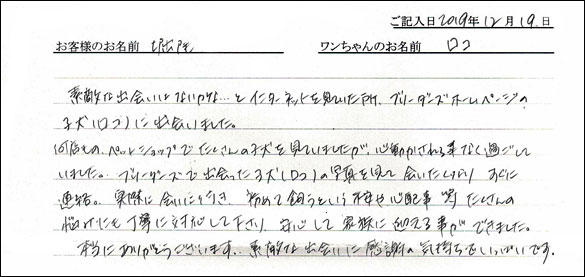 ご記入日 2019年12月19日
お客様のお名前 堀 ワンちゃんのお名前 ロコ
素敵な出会いはないかな…とインターネットを見ていた所、ブリーダーズホームページの
子犬(ロコ)に出会いました。
何店ものペットショップでたくさんの子犬を見ていましたが、心動かされる事なく過ごして
いました。ブリーダーズで出会った子犬(ロコ)の写真を見て会いたくなり すぐに
連絡。実際に会いに行き、初めて飼うという不安や心配事 等 たくさんの
悩みにも丁寧に対応して下さり 安心して家族に迎える事ができました。
本当にありがとうございます。素敵な出会いに感謝の気持ちでいっぱいです。